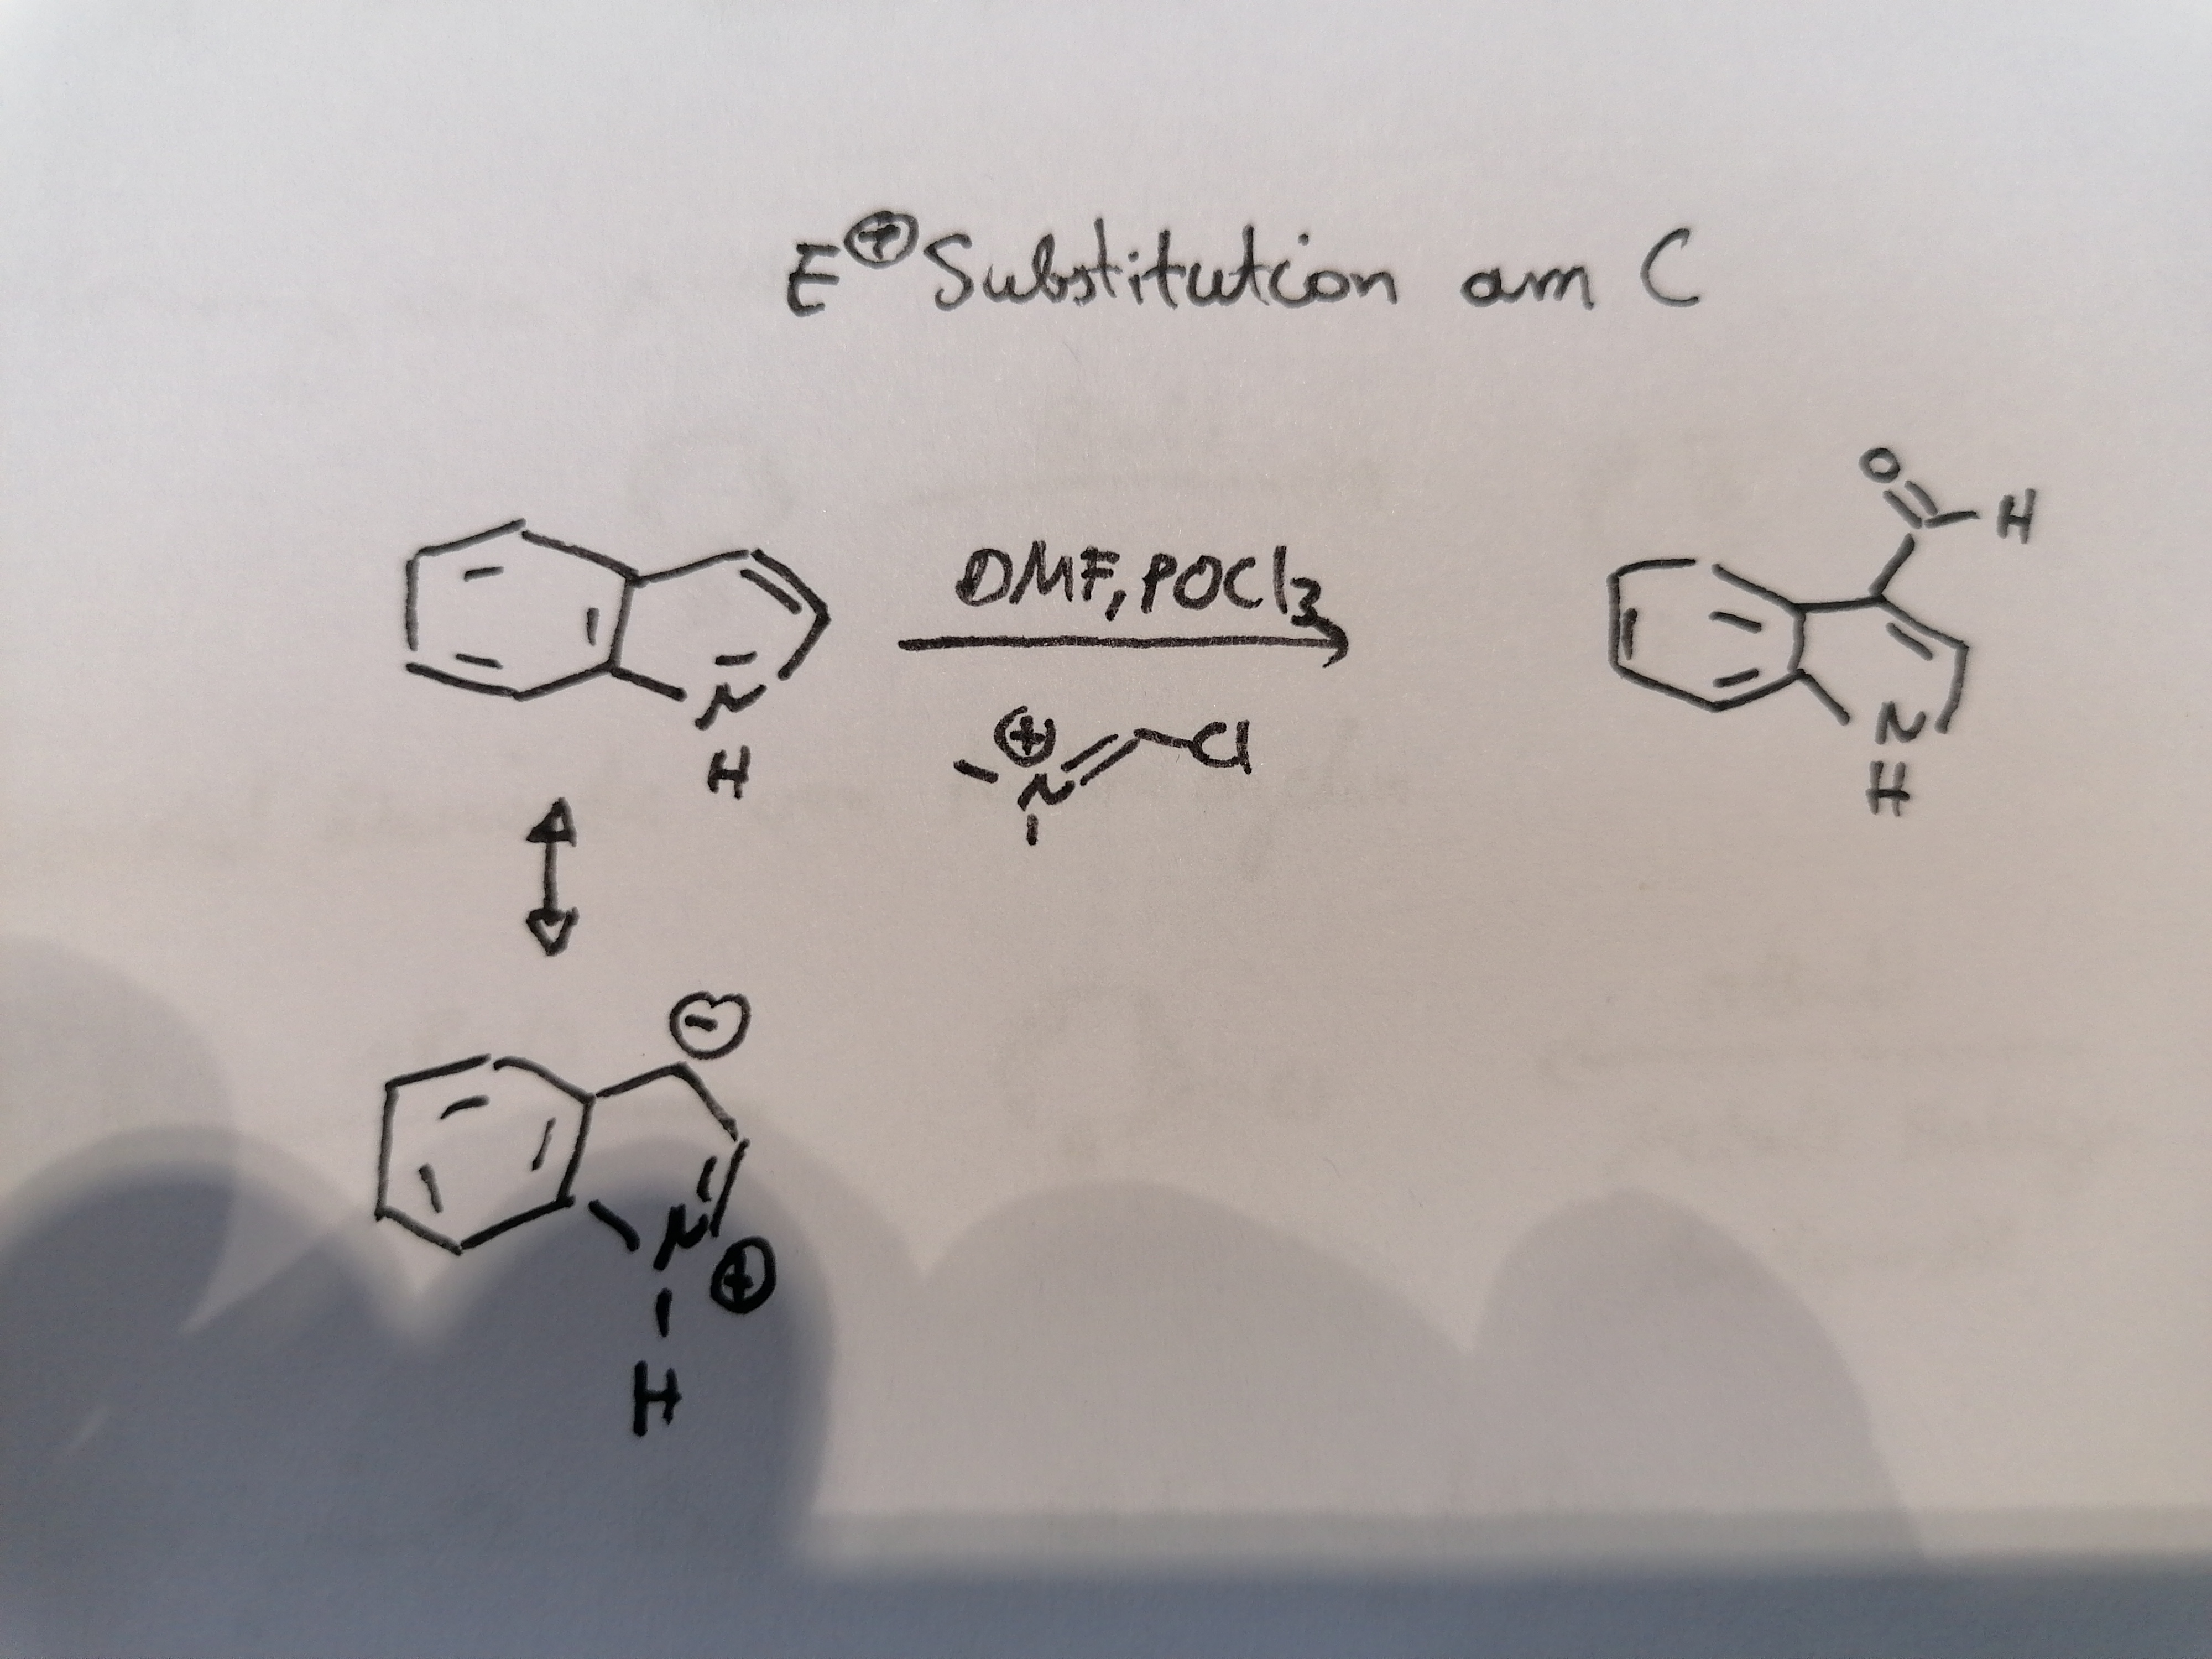 E⊕ Substitution am C
O
H
DMF, POCl3
N
H
⊕
N
Cl
N
H
⊖
N
⊕
H